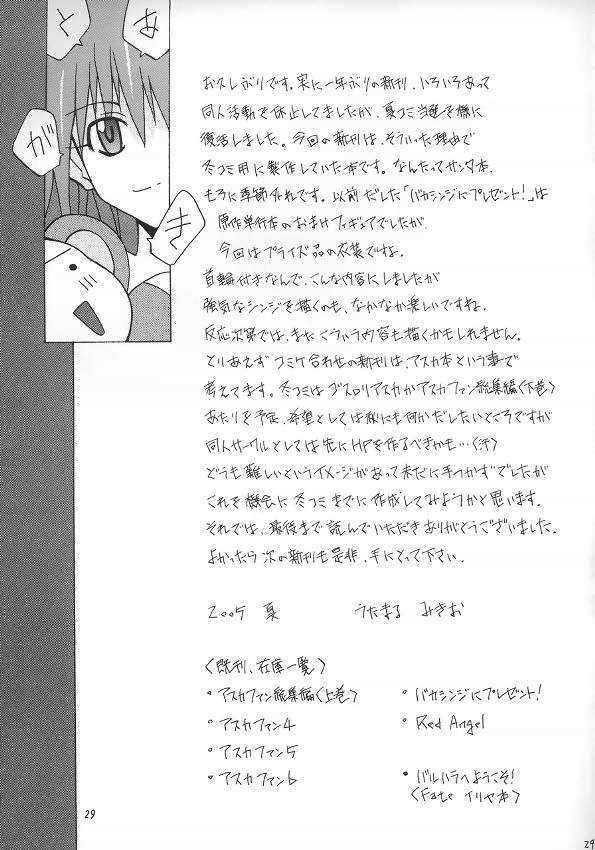 あ
と
が
き
お久しぶりです。実に一年ぶりの新刊、いろいろあって
同人活動を休止してましたが、夏コミ当選を機に
復活しました。今回の新刊は、そういった理由で
冬コミ用に製作していた本です。なんたってサンタ本、
もろに季節外れです。以前だした「バカシンジにプレゼント!」は
原作単行本のおまけフィギュアでしたが
今回はプライズ品の衣装ですよ。
首輪付きなんで、こんな内容にしましたが
強気なシンジを描くのも、なかなか楽しいですね。
反応次第では、またこういう内容も描くかもしれません。
とりあえず コミケ合わせの新刊は、アスカ本という事で
考えてます。冬コミはゴスロリアスカかアスカファン総集編〈下巻〉
あたりを予定、希望としては秋にも何かだしたいところですが
同人サークルとしては先にHPを作るべきかも…(汗)
どうも難しいというイメージがあって未だに手つかずでしたが
これを機会に冬コミまでに作成してみようかと思います。
それでは、最後まで読んでいただきありがとうございました。
よかったら次の新刊も是非、手にとって下さい。
2005 夏 うたまる みきお
〈既刊、在庫一覧〉
・アスカファン総集編〈上巻〉 ・バカシンジにプレゼント!
・アスカファン4 ・Red Angel
・アスカファン5
・アスカファン6 ・バルハラへようこそ!
〈Fate イリヤ本〉
29
29